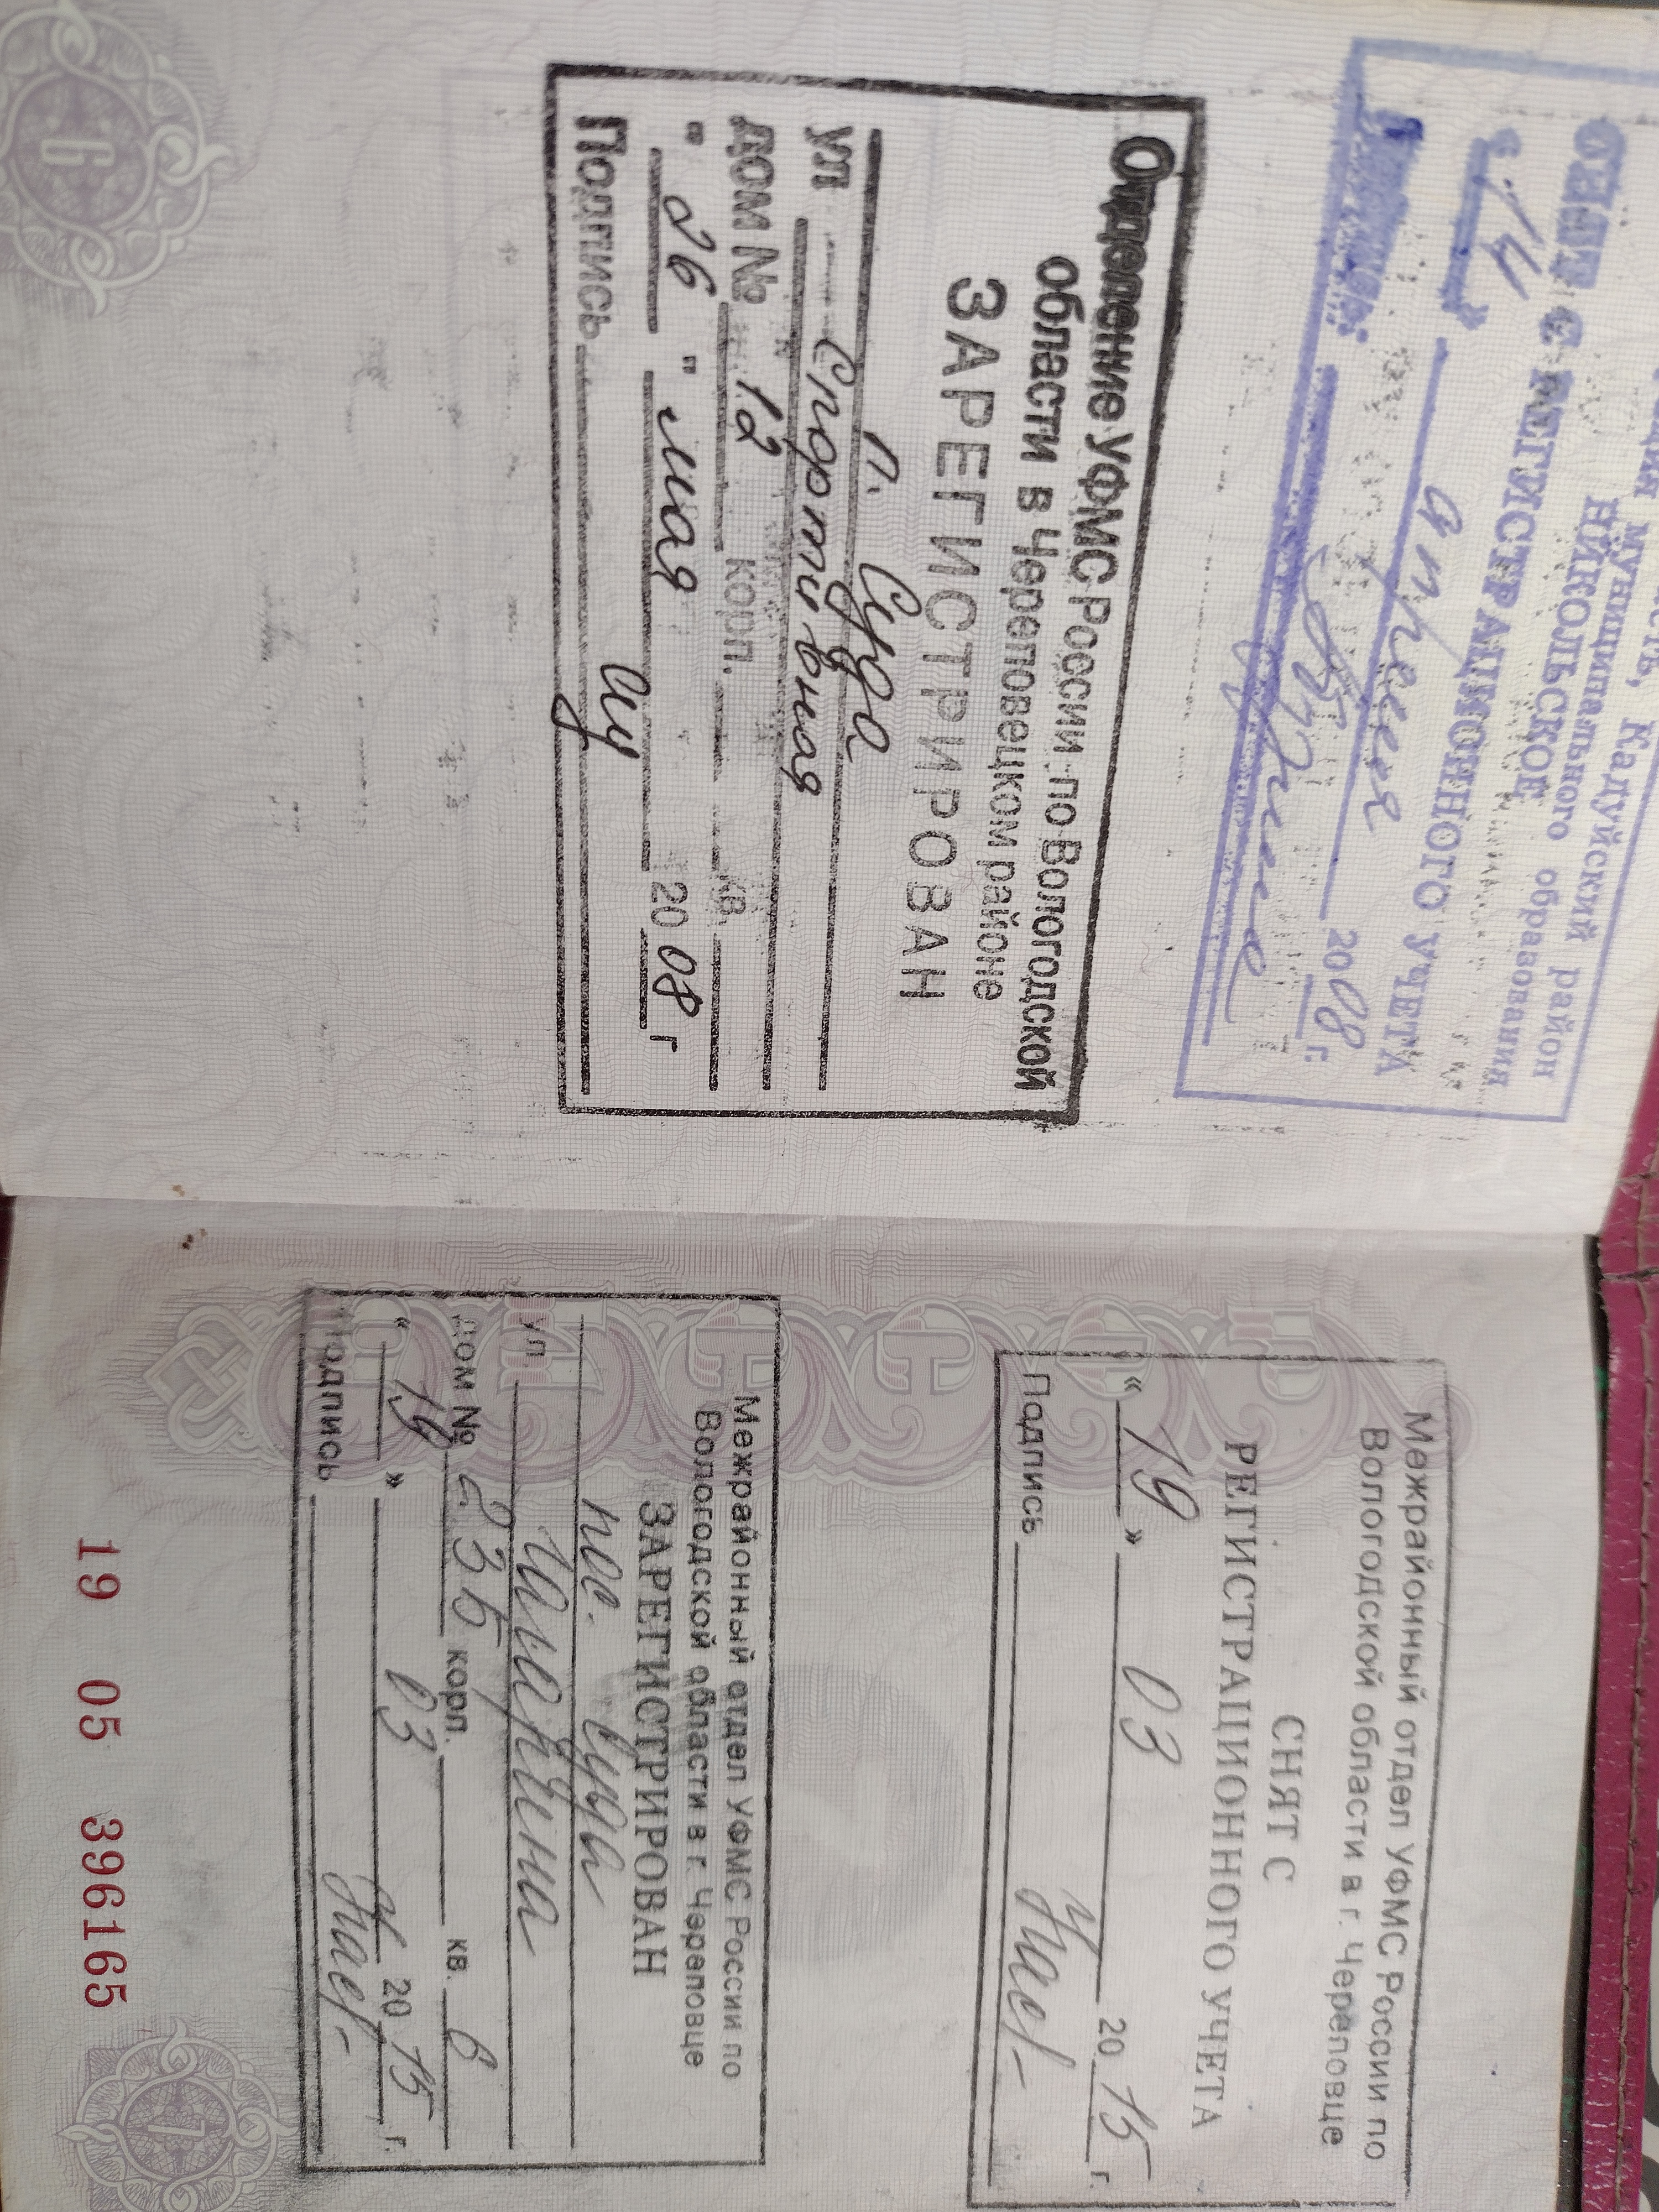 муниципального образования
НИКОЛЬСКОЕ
СНЯТ С РЕГИСТРАЦИОННОГО УЧЕТА
«14» апреля 2008 г.
Отделение УФМС России по Вологодской
области в Череповецком районе
ЗАРЕГИСТРИРОВАН
п. Суда
ул Спортивная
дом № 12 корп. кв.
"26" мая 2008 г
Подпись
6
Межрайонный отдел УФМС России по
Вологодской области в г. Череповце
СНЯТ С
РЕГИСТРАЦИОННОГО УЧЕТА
«19» 03 2015 г.
Подпись
Межрайонный отдел УФМС России по
Вологодской области в г. Череповце
ЗАРЕГИСТРИРОВАН
пос. Суда
ул Гагарина
дом № 23Б корп. кв. 6
«19» 03 2015 г.
Подпись
19 05 396165
7